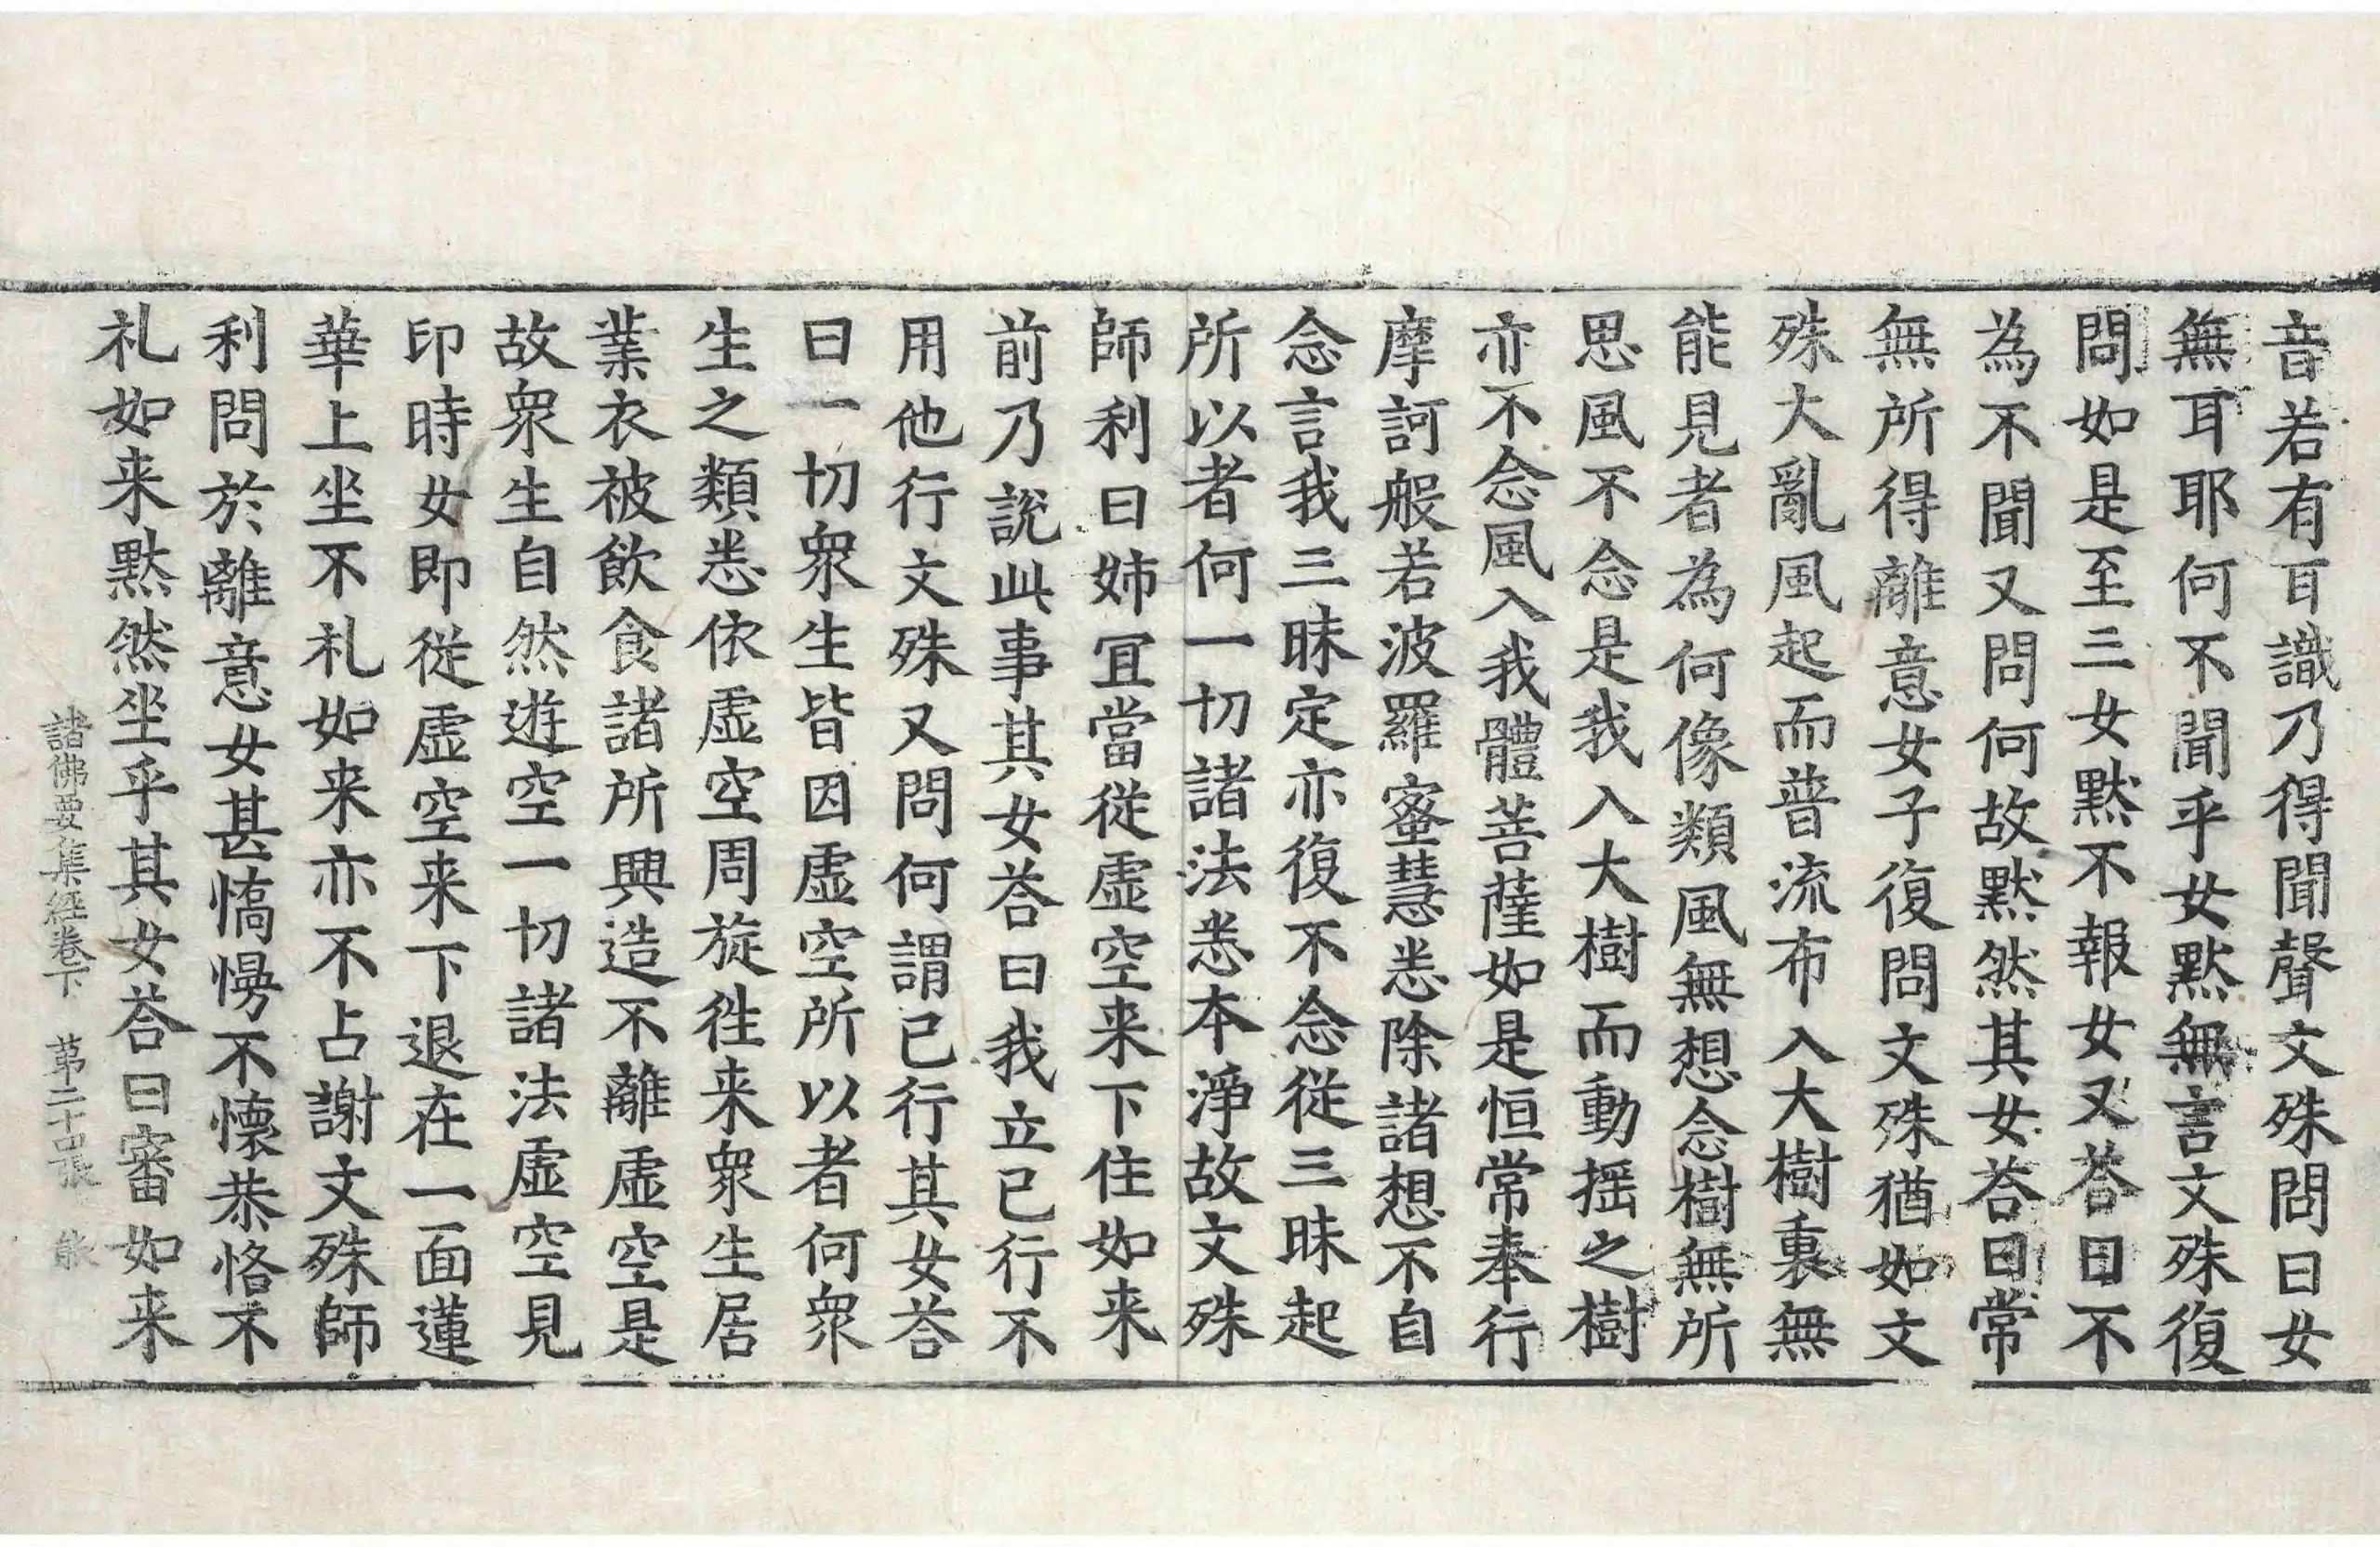 音若有耳識乃得聞聲文殊問曰女
無耳耶何不聞乎女默無言文殊復
問如是至三女默不報女又荅曰不
為不聞又問何故默然其女荅曰常
無所得離意女子復問文殊猶如文
殊大亂風起而普流布入大樹裏無
能見者為何像類風無想念樹無所
思風不念是我入大樹而動揺之樹
亦不念風入我體菩薩如是恒常奉行
摩訶般若波羅蜜慧悉除諸想不自
念言我三昧定亦復不念從三昧起
所以者何一切諸法悉本淨故文殊
師利曰姉冝當從虛空来下住如来
前乃說此事其女荅曰我立已行不
用他行文殊又問何謂已行其女荅
曰一切衆生皆因虛空所以者何衆
生之類悉依虛空周旋徃来衆生居
業衣被飲食諸所興造不離虛空是
故衆生自然遊空一切諸法虛空見
印時女即從虛空来下退在一面蓮
華上坐不礼如来亦不占謝文殊師
利問於離意女甚憍慢不懷恭恪不
礼如来默然坐乎其女荅曰審如来
諸佛要集經卷下 第二十四張 能